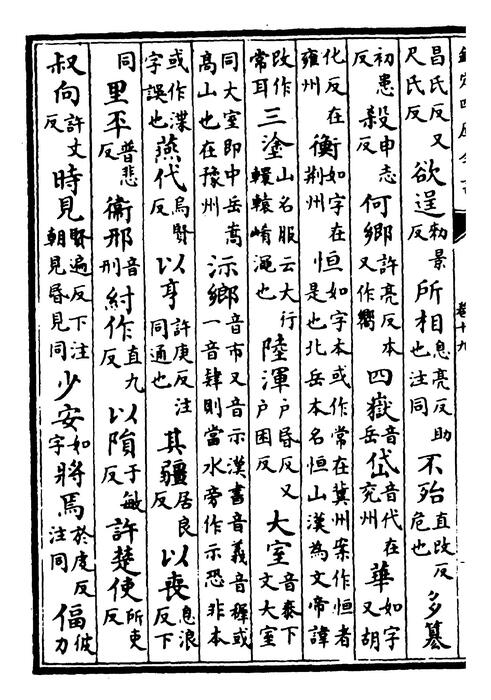 欽定四庫全書 卷十九
昌氏反又尺氏反欲逞勑景反所相息亮反助也注同不殆直改反危也多篡
初患反殺申志反何鄉許亮反本又作嚮四嶽音岳岱音代在兖州華如字又胡
化反在雍州衡如字在荆州恒如字本或作常在冀州案作恒者是也北岳本名恒山漢為文帝諱
改作常耳三塗山名服云大行轘轅崤澠也陸渾户昏反又户困反大室音泰下文大室
同大室即中岳嵩髙山也在豫州沶鄉音市又音示漢書音義音稺或一音肆則當水旁作示恐非本
或作渫字誤也燕代烏賢反以亨許庚反注同通也其疆居良反以喪息浪反下
同里丕普悲反衞邢音刑紂作直九反以隕于敏反許楚使所吏反
叔向許丈反時見賢遍反下注朝見昏見同少安如字將焉於虔反注同偪彼力